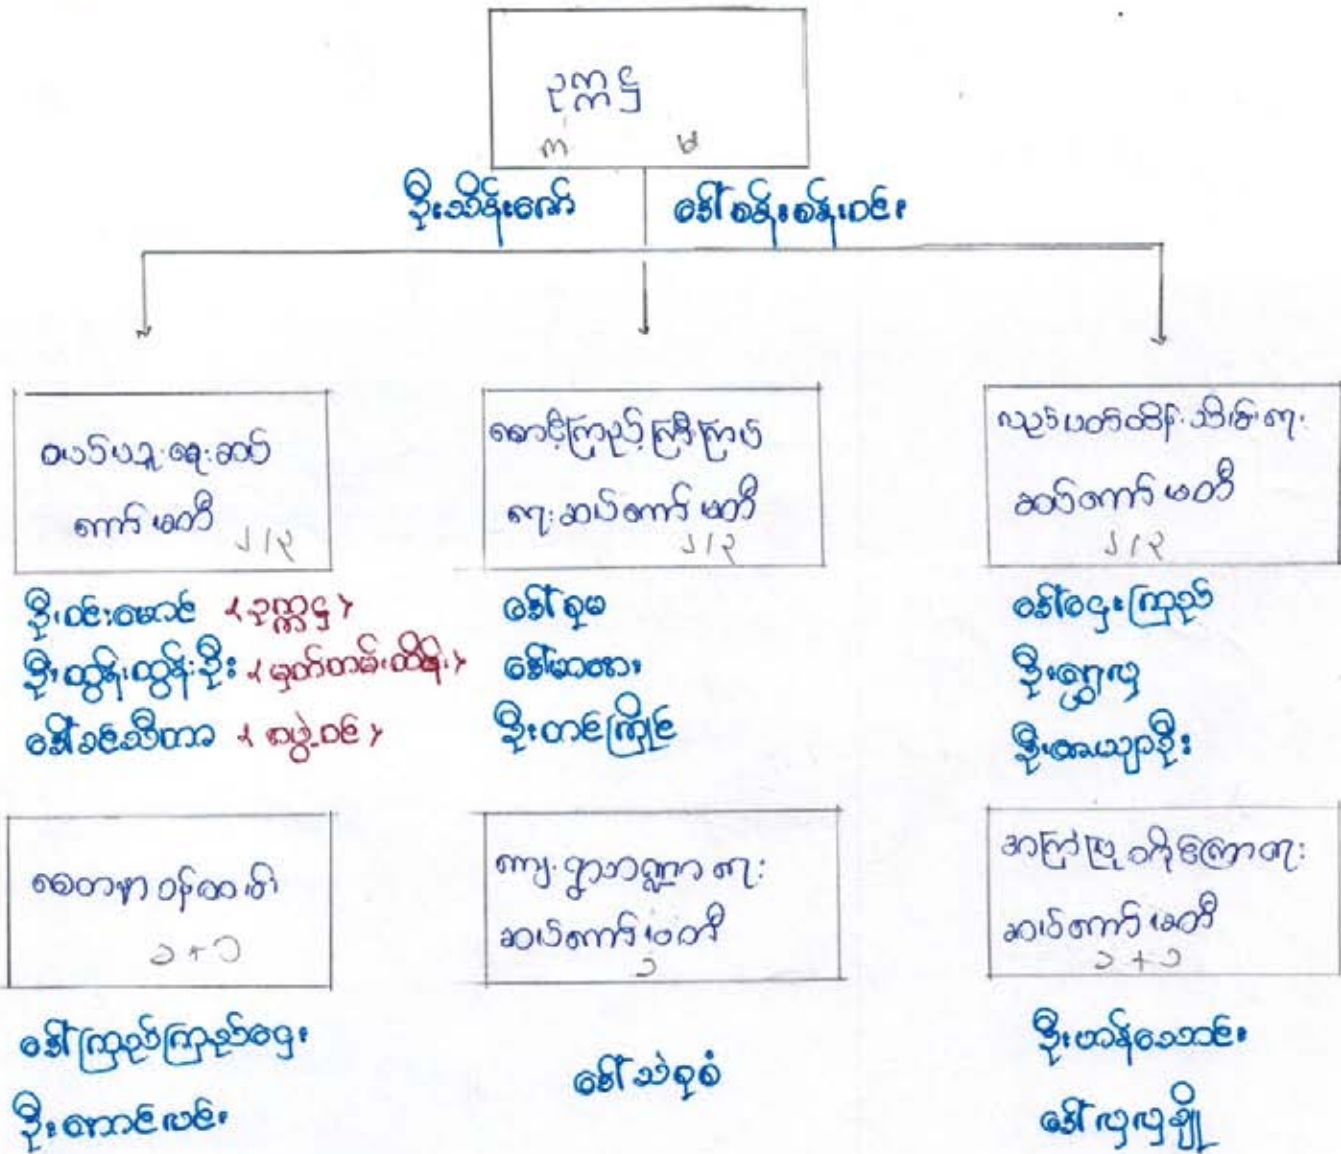 ဥက္ကဋ္ဌ
က မ
ဦးသိန်းဇော် ဒေါ်စန်းစန်းဝင်း
ဝယ်ယူရေးဆပ်
ကော်မတီ ၂/၃
ဦးဝင်းမောင် <ဥက္ကဋ္ဌ>
ဦးထွန်းထွန်းဦး <မှတ်တမ်းထိန်း>
ဒေါ်ခင်သီတာ <စဖွဲ့ဝင်>
စောင့်ကြည့်ကြီးကြပ်
ရေးဆပ်ကော်မတီ
၂/၃
ဒေါ်စုမ
ဒေါ်မာစား
ဦးတင်ကြိုင်
လုပ်ပတ်ထိန်းသိမ်းရေး
ဆပ်ကော်မတီ
၂/၃
ဒေါ်ဌေးကြည်
ဦးရွှေလှ
ဦးအေးယျာဦး
စေတနာ့ဝန်ထမ်း
၁+၁
ဒေါ်ကြည်ကြည်ဌေး
ဦးအောင်လင်း
ကျေးရွာဘဏ္ဍာရေး
ဆပ်ကော်မတီ
၁
ဒေါ်သဲစုစံ
အကြံပြုတိုင်ကြားရေး
ဆပ်ကော်မတီ
၁+၁
ဦးဟန်သောင်း
ဒေါ်လှလှချို